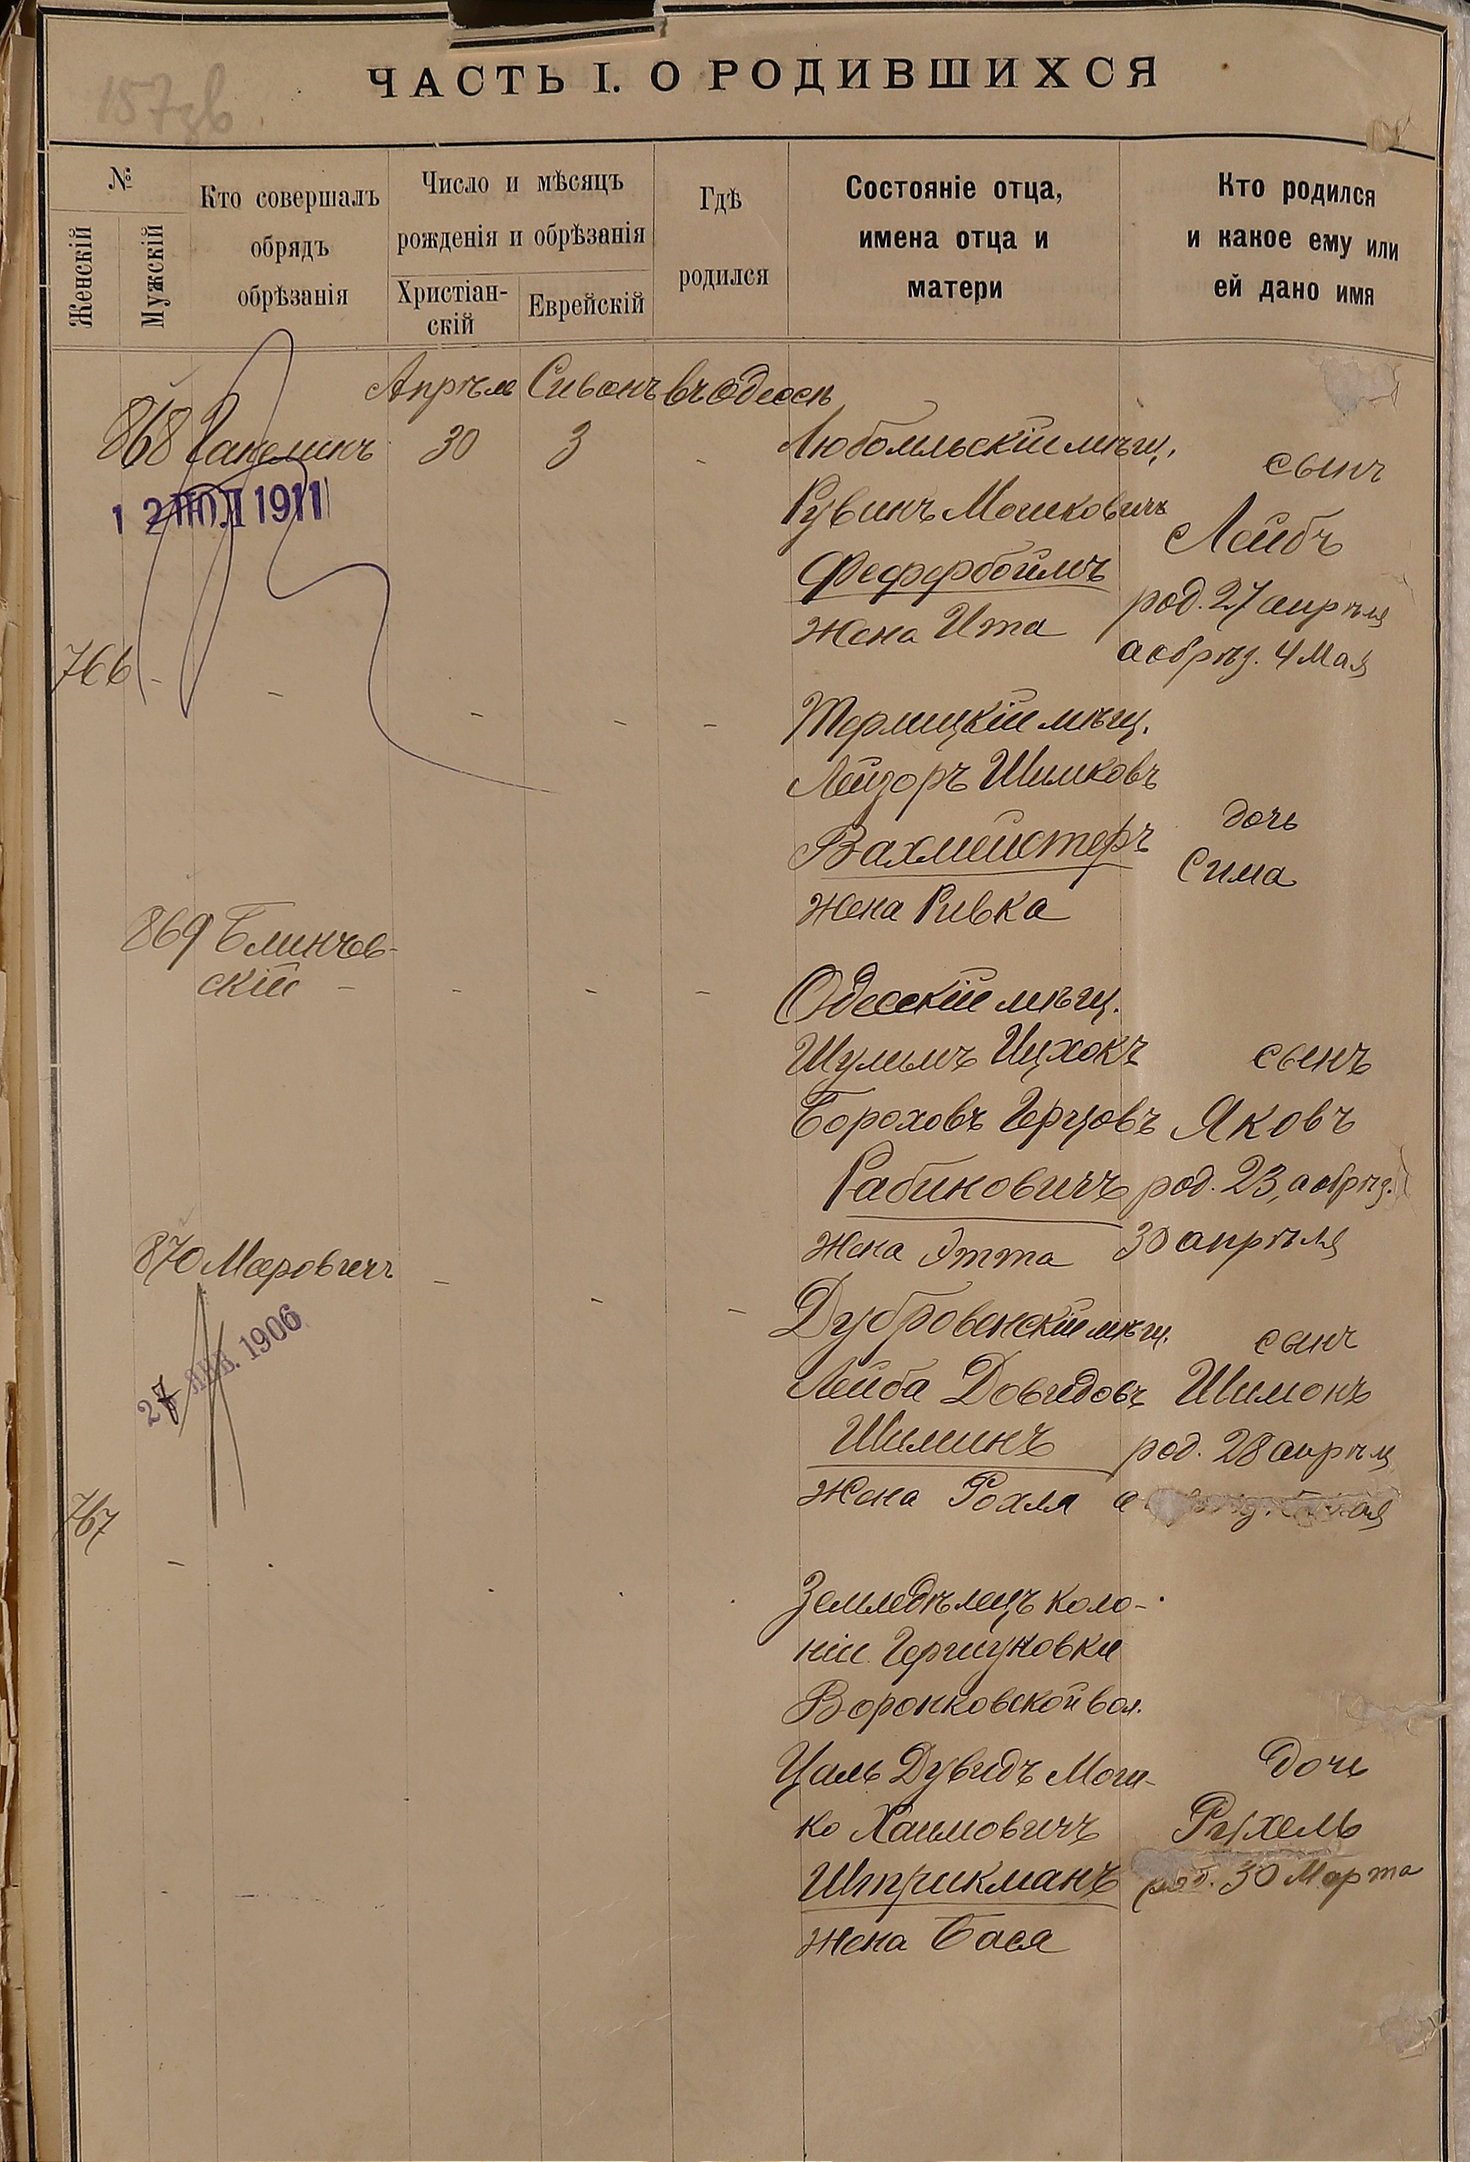 157 зв
ЧАСТЬ I. О РОДИВШИХСЯ
№
Женскій
Мужскій
Кто совершалъ
обрядъ
обрѣзанія
Число и мѣсяцъ
рожденія и обрѣзанія
Христіан-
скій
Еврейскій
Гдѣ
родился
Состояніе отца,
имена отца и
матери
Кто родился
и какое ему или
ей дано имя
Апрѣля Сивонъ въ Одессѣ
868 30 3 - Любомльскій мѣщ.
Рувинъ Мошковичъ
Фефербоймъ
жена Ита
сынъ
Лейбъ
род. 27 апрѣля
а обрѣз. 4 Мая
12 ІЮЛ 1911
766 - - - - - мѣщ.
Лейзоръ Шимковъ
Вахмейстеръ
жена Ривка
дочь
Сима
869 Блинчев-
скій - - - - Одесскій мѣщ.
Шулимъ Ицхокъ
Бороховъ Герцовъ
Рабиновичъ
жена Этта
сынъ
Яковъ
род. 23, а обрѣз.
30 апрѣля
870 Меровичъ - - - Дубровенскій мѣщ.
Лейба Довидовъ
Шиминъ
жена Рохля
сынъ
Шимонъ
род. 28 апрѣля
а
27 ЯНВ. 1906
767 - Земледѣлецъ коло-
ніи Гершуновки
Воронковской вол.
Цаль Дувидъ Мош-
ко Хаимовичъ
Штрикманъ
жена Бася
дочь
Рухель
род. 30 Марта